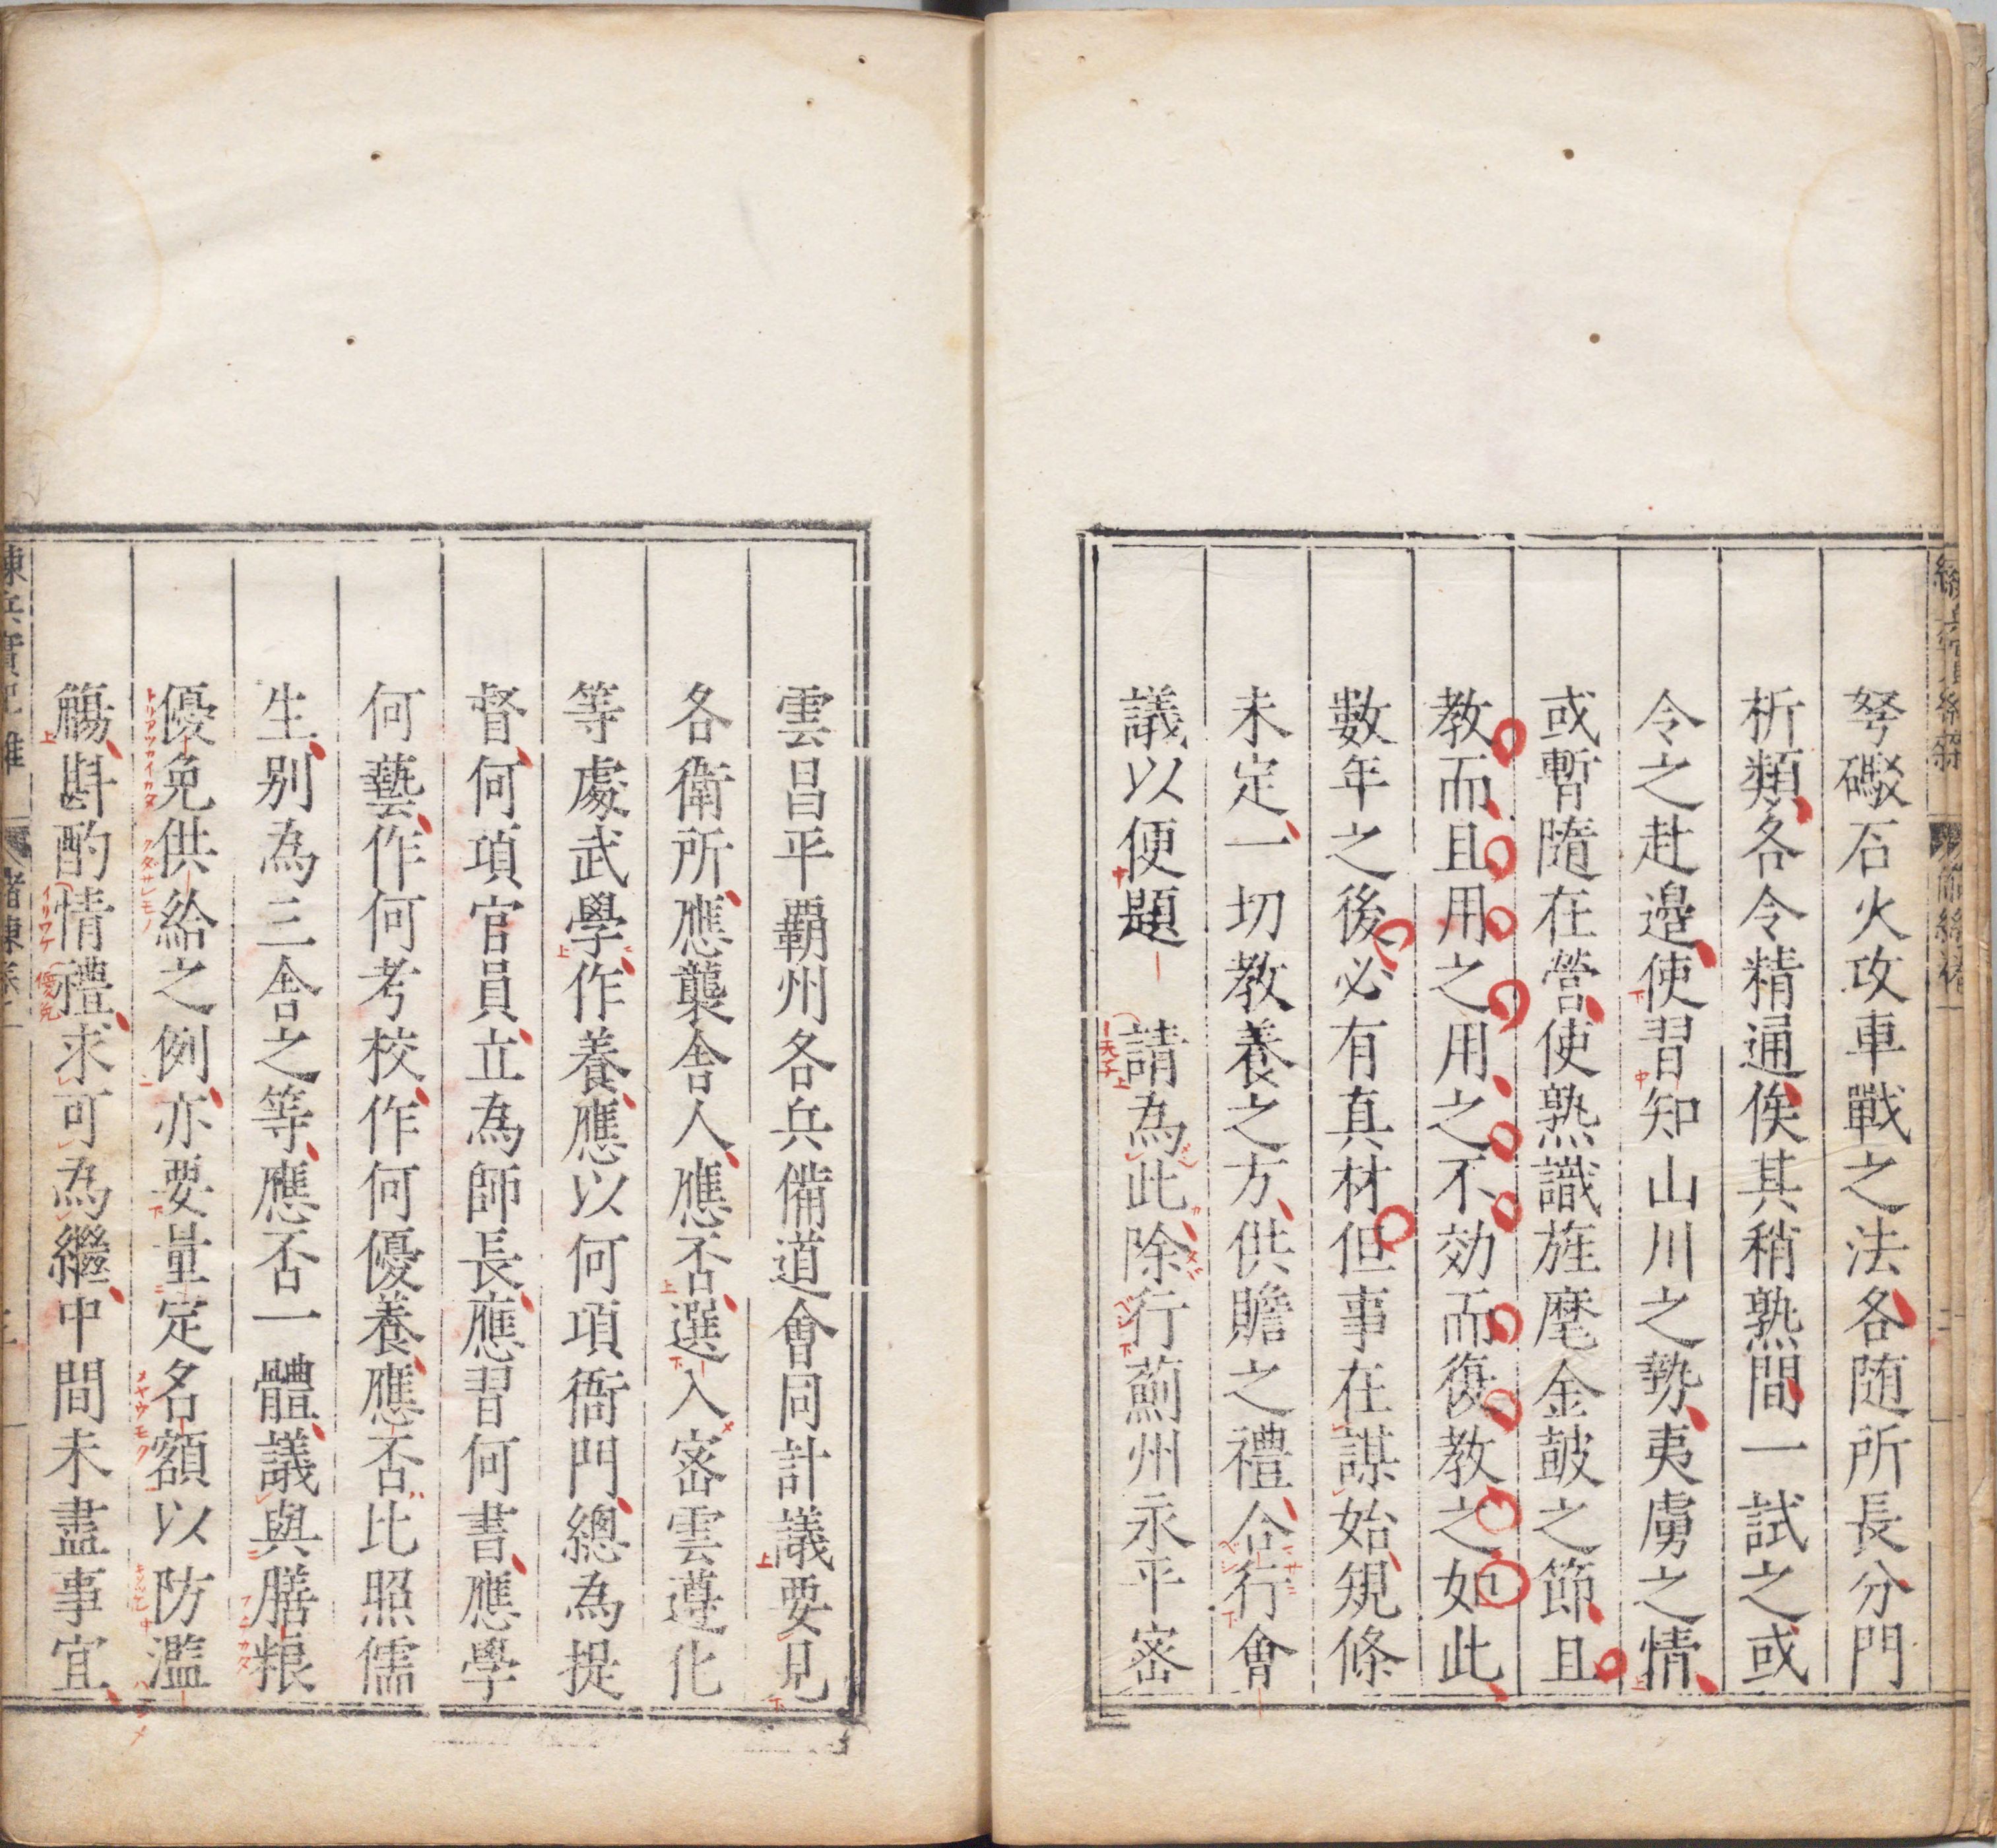 弩礮石火攻車戰之法各随所長分門
析類各令精通俟其稍熟間一試之或
令之赴邊使習知山川之勢夷虜之情
或暫隨在營使熟識旌麾金鼓之節且
教而且用之用之不効而復教之如此
數年之後必有真材但事在謀始規條
未定一切教養之方供贍之禮合行會
議以便題　請為此除行薊州永平密
雲昌平覇州各兵備道會同計議要見
各衛所應襲舍人應否選入密雲遵化
等處武學作養應以何項衙門總為提
督何項官員立為師長應習何書應學
何藝作何考校作何優養應否比照儒
生别為三舍之等應否一體議與膳粮
優免供給之例亦要量定名額以防濫
觴斟酌情禮求可為繼中間未盡事宜